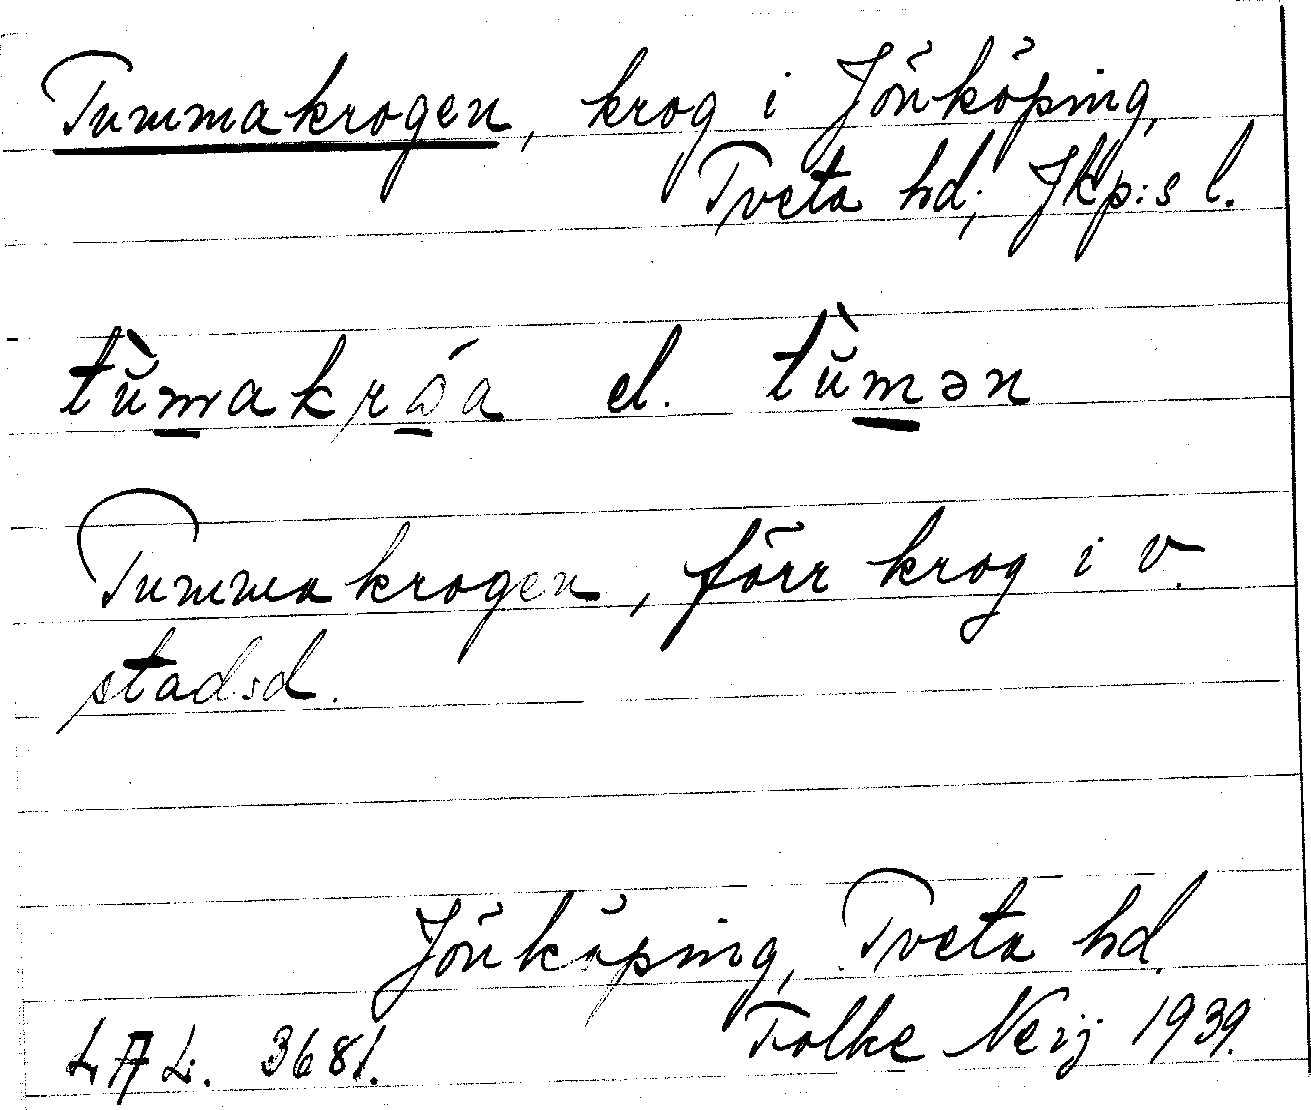 Tummakrogen, krog i Jönköping,
Tveta hd; Jkp:s l.
tùm̲akrώ̲a el. tùm̲ən
Tummakrogen, förr krog i v.
stadsd.
Jönköping, Tveta hd.
L A L. 3681. Folke Neij 1939.